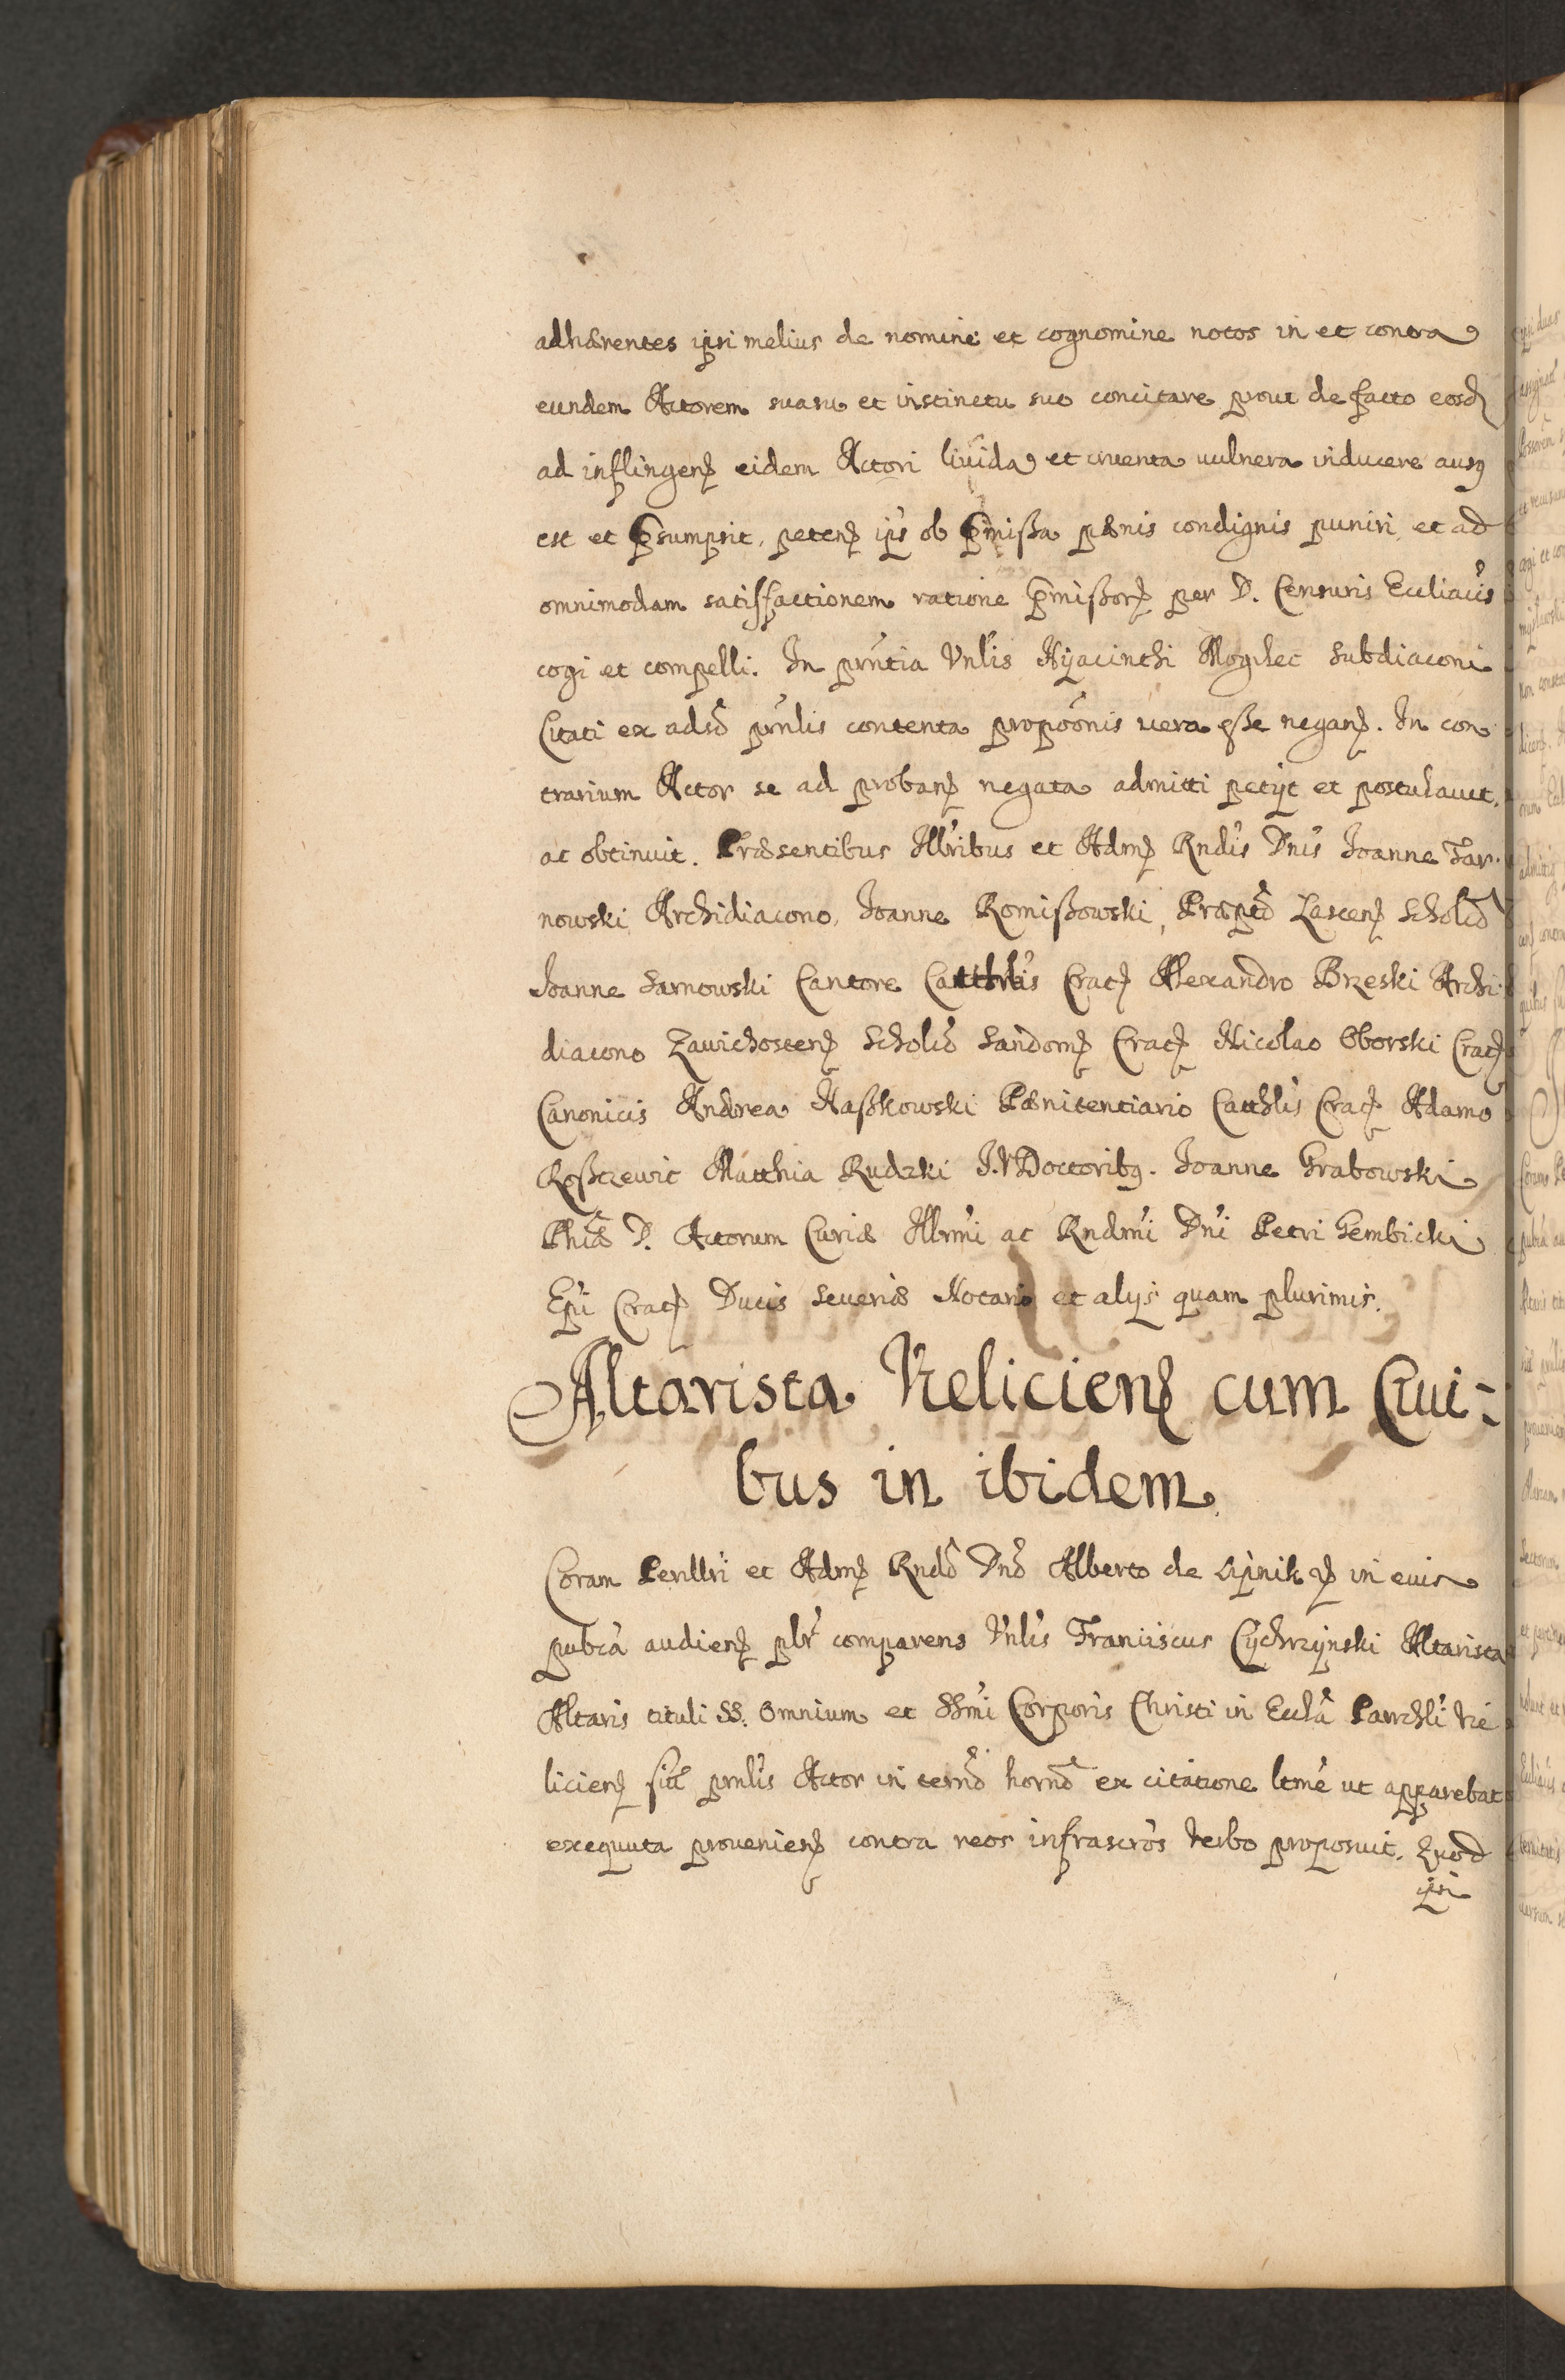 adhærentes ipsi melius de nomine et cognomine notos in et contra
eundem Actorem suasu et instinctu suo concitare prout de facto eosd
ad infligen eidem Actori liuida et cruenta uulnera inducere ausq
est et p̃sumpsit, peten ips ob p̃mißa pænis condignis puniri et ad
omnimodam satisfactionem ratione p̃mißor per D. Censuris Eccliacis
cogi et compelli. In prñtia Vnlis Hyacinthi Mogilec Subdiaconi
Citati ex adso prñlis contenta propoonis uera eße negan. In con
trarium Actor se ad proban negata admitti petijt et postulauit,
ac obtinuit. Præsentibus Illribus et Adm Rndis Dnis Joanne Tar-
nowski Archidiacono, Joanne Romißowski, Præpto Lascen Scholco
Joanne Sarnowski Cantore Catthrlis Crac Alexandro Brzeski Archi
diacono Zauichosten Scholco Sandom Crac Nicolao Oborski Crac
Canonicis Andrea Naßkowski Pænitentiario Catthlis Crac Adamo
Roßczewic Matthia Rudzki J.V Doctoribq. Joanne Grabowski
Phiæ D. Actorum Curiæ Illrmi ac Rndmi Dni Petri Gembicki
Epi Crac Ducis Seueriæ Notario et alijs quam plurimis.
Altarista Vieliciens cum Ciui=
bus in ibidem
Coram Perillri et Adm Rndo Dno Alberto de Lipnik in eius
pubca audien plr comparens Vnlis Franciscus Cychrzynski Altarista
Altaris tituli SS. Omnium et SSmi Corporis Christi in Eccla Parrchli Vie
licien prnlis Actor in termo horno ex citatione ltme ut apparebat
exequuta prouenien contra reos infrascros verbo proposuit. Quod
ipsi